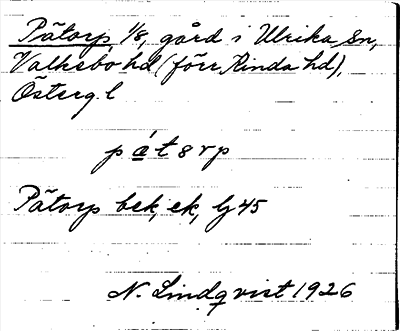 Påtorp 1/8, gård i Ulrika sn,
Valkebo hd (förr Kinda hd),
Österg. l
p á t 8 r p
Påtorp bek, ek, lj 45
N. Lindqvist 1926